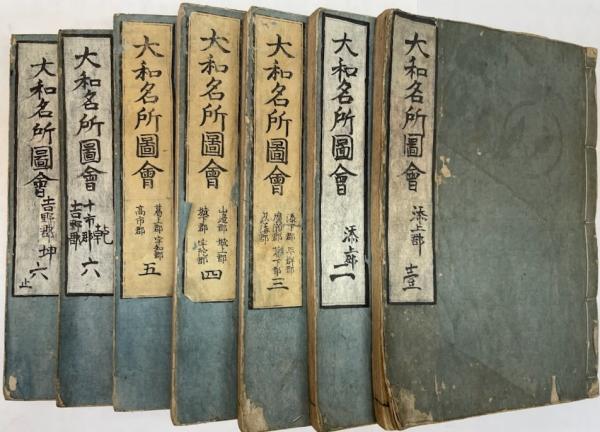 大和名所圖會
添上郡
壹
大和名所圖會
添上郡
二
大和名所圖會
添下郡 平群郡
廣瀬郡 葛下郡
忍海郡
三
大和名所圖會
山邊郡 城上郡
城下郡 宇陀郡
四
大和名所圖會
葛上郡 宇知郡
高市郡
五
大和名所圖會
十市郡
吉野郡
乾
六
大和名所圖會
吉野郡
坤
六
止